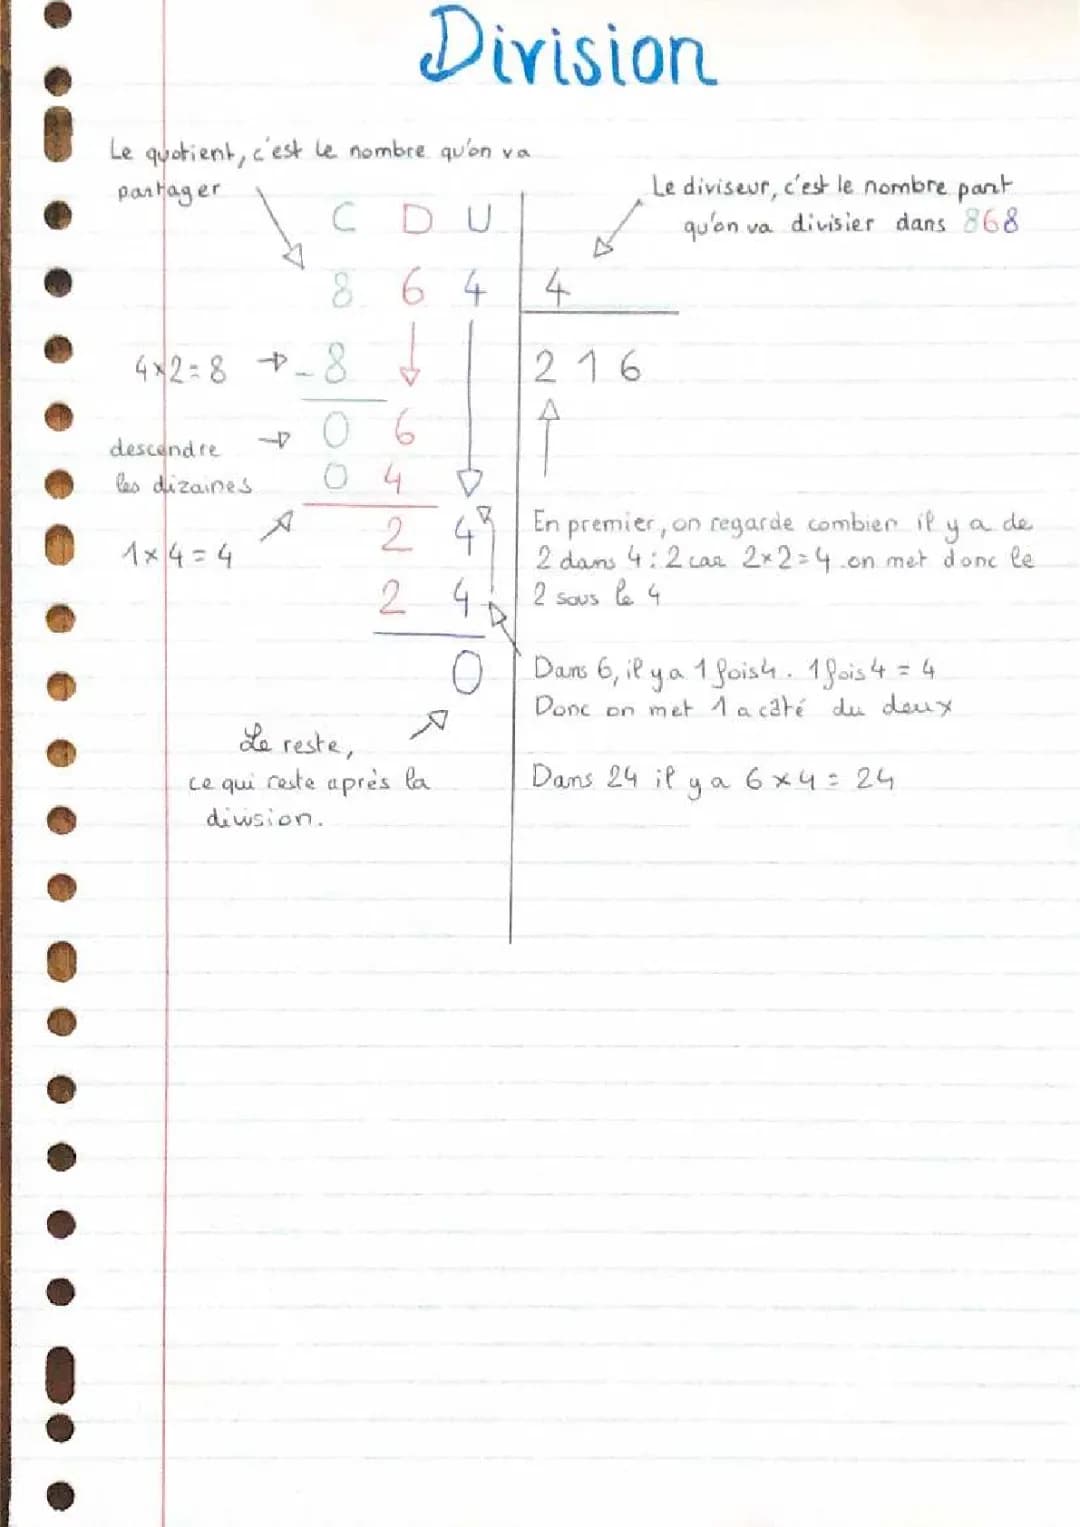 Division
Le quotient, c'est le nombre qu'on va
partager
Le diviseur, c'est le nombre part
qu'on va divisier dans 868
C D U
8 6 4 4
4×2=8 - 8 2 1 6
descendre 0 6
les dizaines 0 4
1×4=4 2 4
2 4
0
Le reste,
ce qui reste après la
division.
En premier, on regarde combien il y a de
2 dans 4 : 2 car 2×2=4 on met donc le
2 sous le 4
Dans 6, il y a 1 fois 4. 1 fois 4 = 4
Donc on met 1 a câté du deux
Dans 24 il y a 6×4 = 24